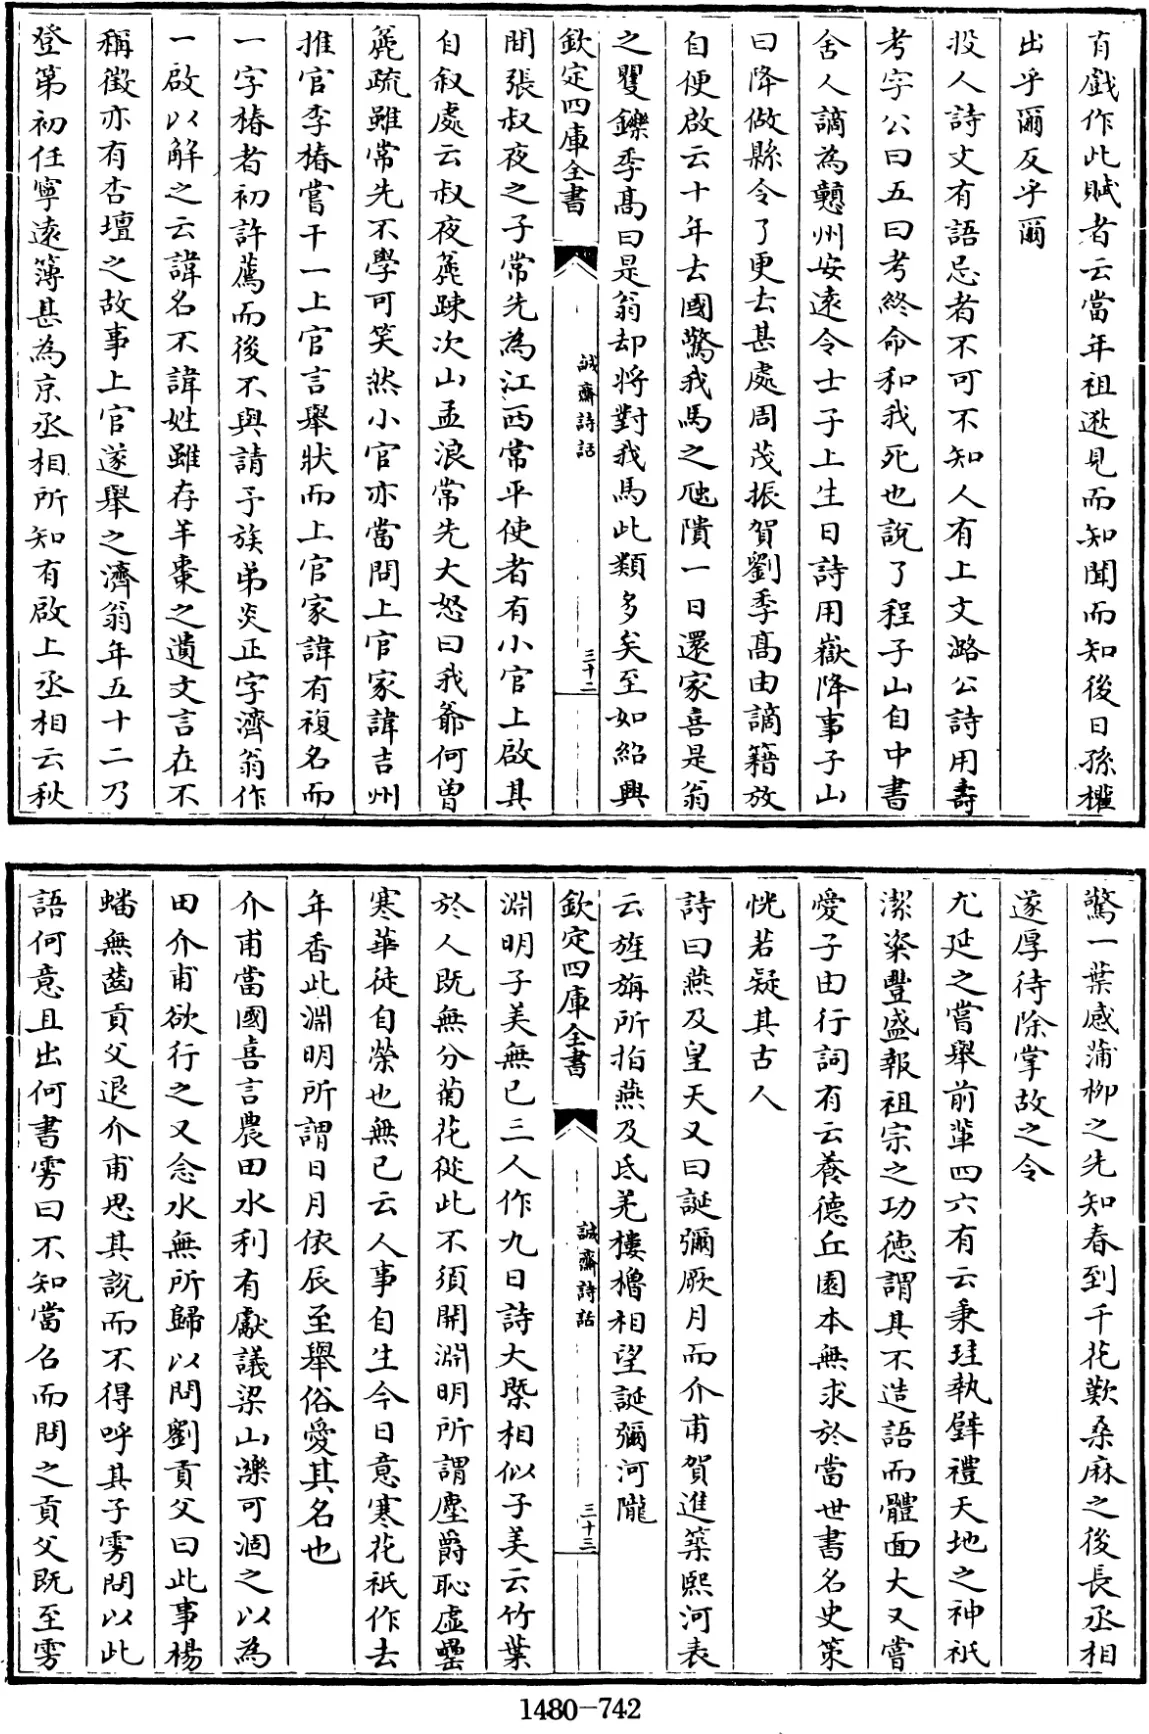 有戲作此賦者云當年祖逖見而知聞而知後日孫權
出乎爾反乎爾
投人詩文有語忌者不可不知人有上文潞公詩用壽
考字公曰五曰考終命和我死也說了程子山自中書
舍人謫為贛州安遠令士子上生日詩用嶽降事子山
曰降做縣令了更去甚處周茂振賀劉季高由謫籍放
自便啟云十年去國驚我馬之虺隤一日還家喜是翁
之矍鑠季高曰是翁却將對我馬此類多矣至如紹興
欽定四庫全書
誠齋詩話
三十二
間張叔夜之子常先為江西常平使者有小官上啟其
自叙處云叔夜麄踈次山孟浪常先大怒曰我爺何曽
麄疏雖常先不學可笑然小官亦當問上官家諱吉州
推官李椿嘗干一上官言舉狀而上官家諱有複名而
一字椿者初許薦而後不與請予族弟炎正字濟翁作
一啟以解之云諱名不諱姓雖存羊棗之遺文言在不
稱徵亦有杏壇之故事上官遂舉之濟翁年五十二乃
登第初任寧遠簿甚為京丞相所知有啟上丞相云秋
驚一葉感蒲柳之先知春到千花歎桑麻之後長丞相
遂厚待除掌故之令
尤延之嘗舉前軰四六有云秉珪執璧禮天地之神祇
潔粢豐盛報祖宗之功德謂其不造語而體面大又嘗
愛子由行詞有云養德丘園本無求於當世書名史策
恍若疑其古人
詩曰燕及皇天又曰誕彌厥月而介甫賀進築熙河表
云旌旃所拍燕及氐羌樓櫓相望誕彌河隴
欽定四庫全書
誠齋詩話
三十三
淵明子美無已三人作九日詩大槩相似子美云竹葉
於人既無分菊花從此不須開淵明所謂塵爵恥虛罍
寒華徒自榮也無已云人事自生今日意寒花祇作去
年香此淵明所謂日月依辰至舉俗愛其名也
介甫當國喜言農田水利有獻議梁山濼可涸之以為
田介甫欲行之又念水無所歸以問劉貢父曰此事楊
蟠無齒貢父退介甫思其說而不得呼其子雱問以此
語何意且出何書雱曰不知當召而問之貢父既至雱
1480-742